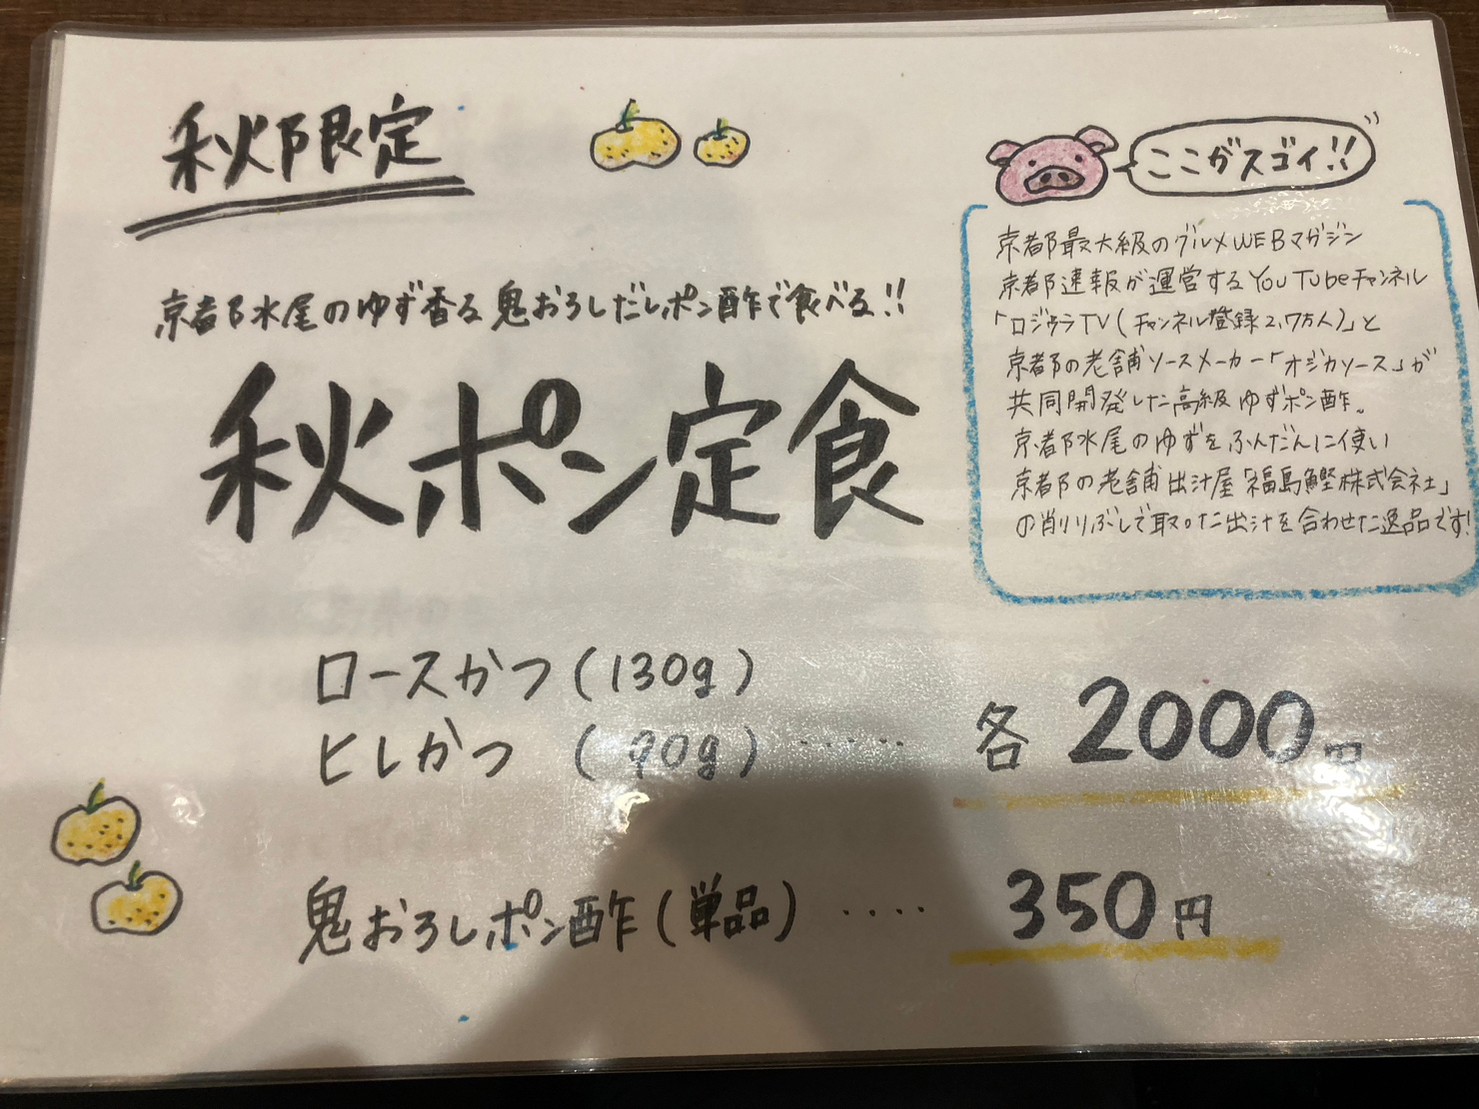 秋限定
ここがスゴイ!!
京都最大級のグルメWEBマガジン
京都速報が運営するYouTubeチャンネル
「ロジウラTV(チャンネル登録2,7万人)」と
京都の老舗ソースメーカー「オジカソース」が
共同開発した高級ゆずポン酢。
京都水尾のゆずをふんだんに使い
京都の老舗出汁屋「福島鰹株式会社」
の削りぶしで取った出汁を合わせた逸品です!
京都水尾のゆず香る鬼おろしだしポン酢で食べる!!
秋ポン定食
ロースかつ(130g)
ヒレかつ (90g)····· 各2000円
鬼おろしポン酢(単品)···· 350円